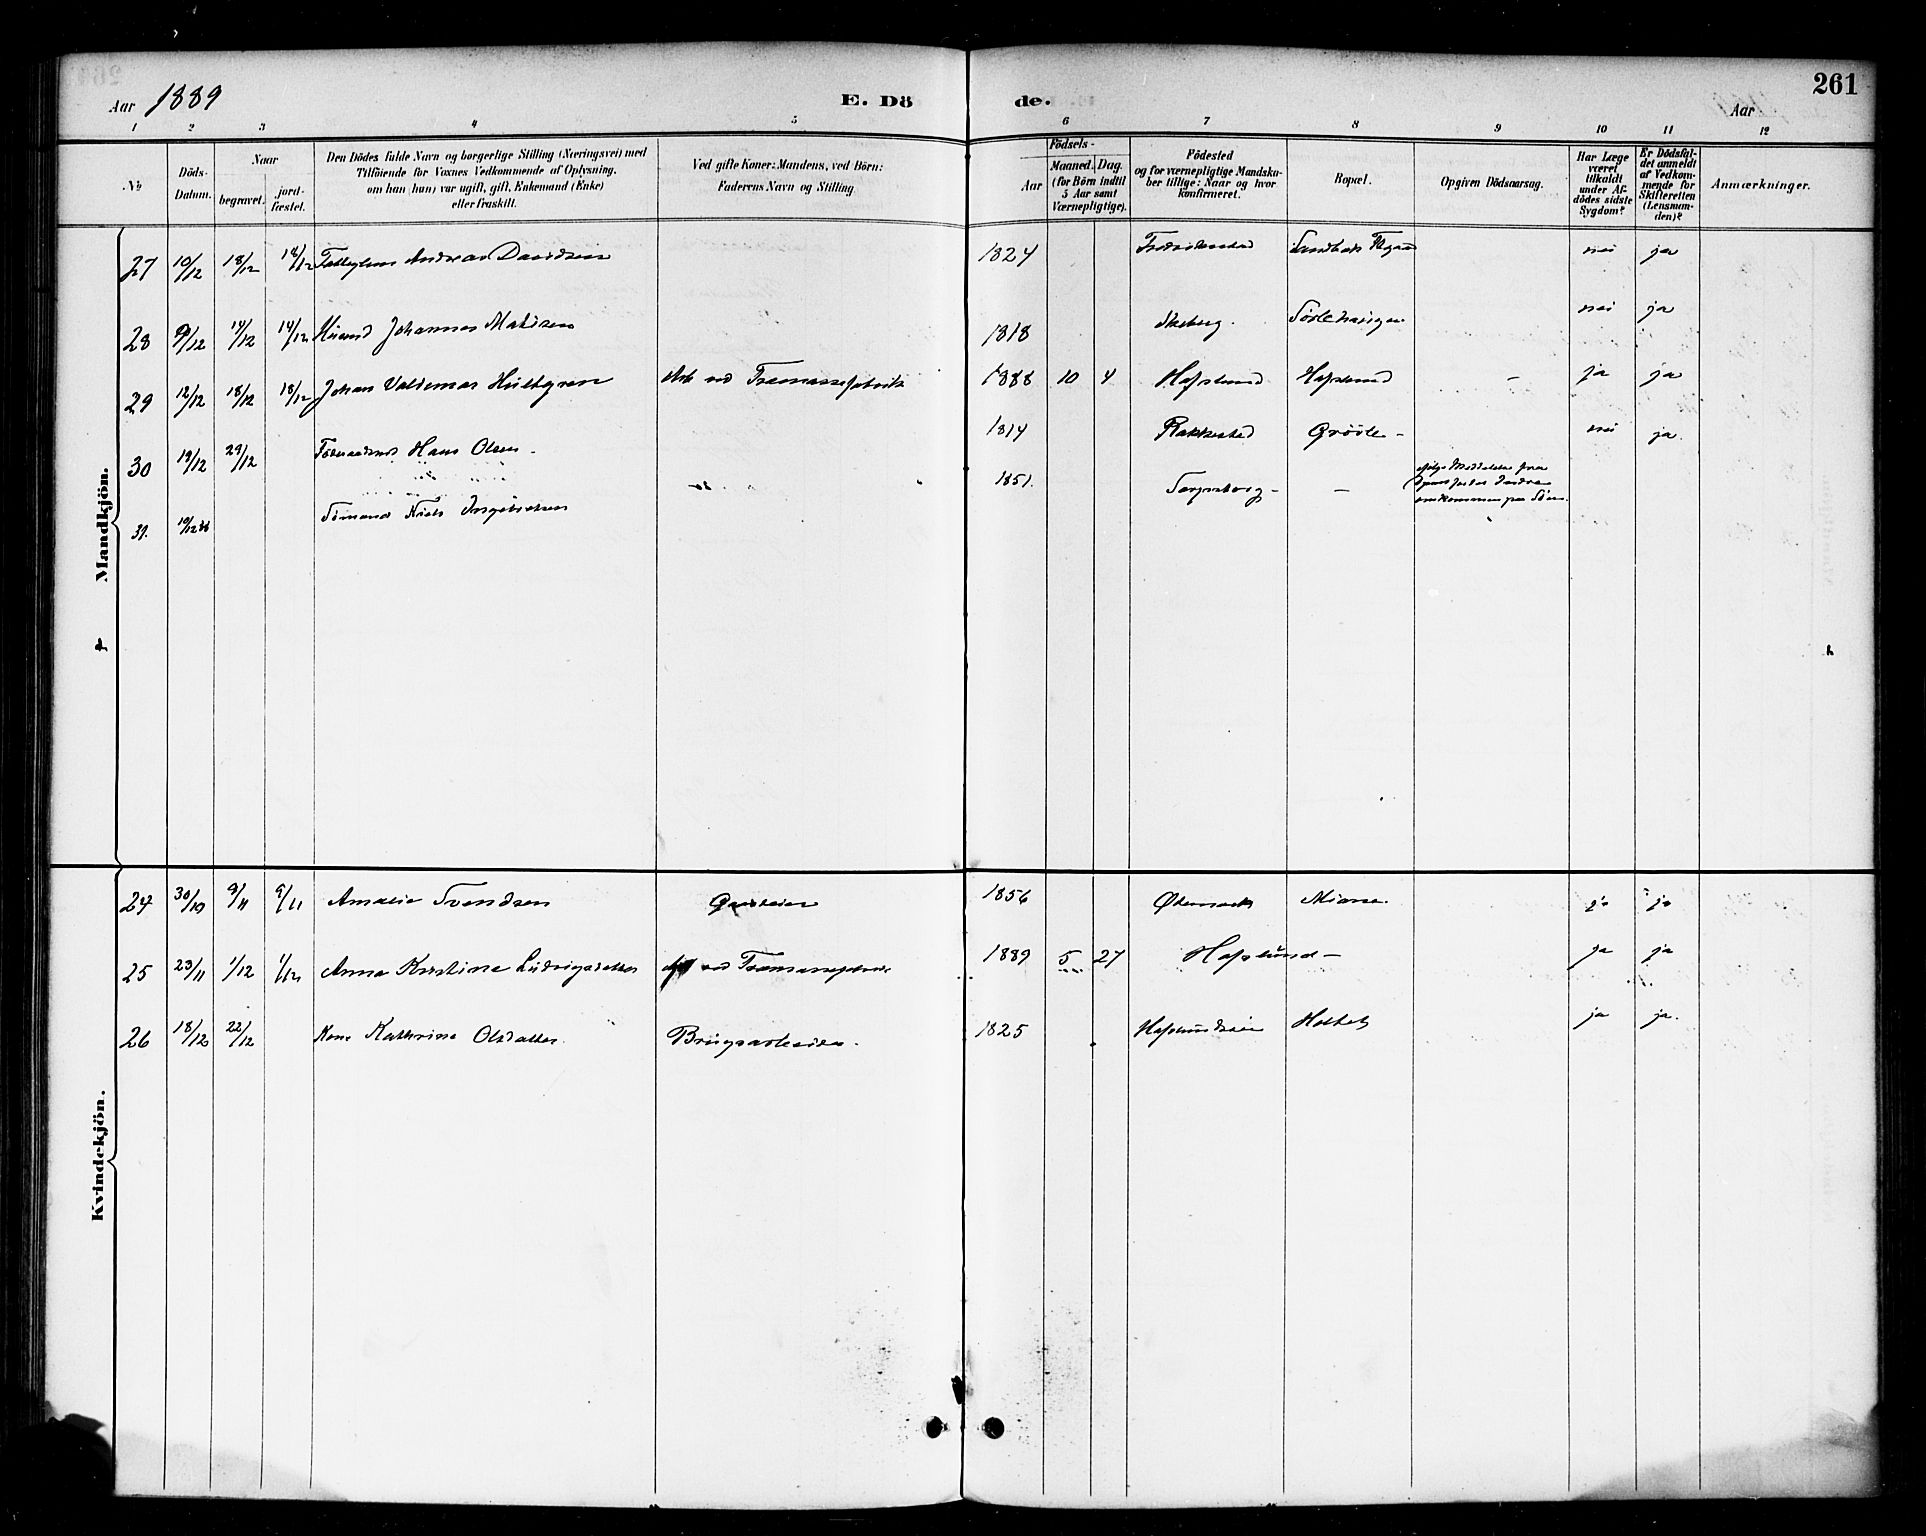 261
Aar 1889
E. Dö
de.
Aar
1 2 3 4 5 6 7 8 9 10 11 12
No
Döds-
Datum.
Naar
begravet.
jord-
fæstet.
Den Dödes fulde Navn og borgerlige Stilling (Næringsvei) med
Tilföiende for Voxnes Vedkommende af Oplysning,
om han (hun) var ugift, gift, Enkemand (Enke)
eller fraskilt.
Ved gifte Koner: Mandens, ved Börn:
Faderens Navn og Stilling.
Födsels-
Aar
Maaned. Dag.
(for Börn indtil
5 Aar samt
Værnepligtige).
Födested
og for værnepligtige Mandska-
ber tillige: Naar og hvor
konfirmeret.
Bopæl.
Opgiven Dödsaarsag.
Har Læge
været
tilkaldt
under Af-
dödes sidste
Sygdom?
Er Dödsfal-
det anmeldt
af Vedkom-
mende for
Skifteretten
(Lensman-
den)?
Anmærkninger.
Mandkjön.
27 10/12 18/12 18/12 Andreas Davidsen 1824 Fredrikstad nei ja
28 9/12 14/12 14/12 Husmd Johannes Matisen 1818 Skeberg. nei ja
29 12/12 18/12 18/12 Johan Valdemar Hultgren Arb ved Træmassefabrik 1888 10 4 Hafslund Hafslund - ja ja
30 19/12 29/12 Hans Olsen 1814 Rakkestad nei ja.
31. Sömand Niels Ingebretsen 1851. Sarpsborg - - omkommen paa Söen.
Kvindekjön.
24 30/10 9/11 9/11 Amalie Svendsen 1856 ja ja
25 23/11 1/12 1/12 Anna Kristine Ludvigsdatter Arb ved Træmassefabrik 1889 5 27 Hafslund - ja ja
26 18/12 22/12 Kone Kathrine Olsdatter. Brugsarbeider. 1825 ja ja.